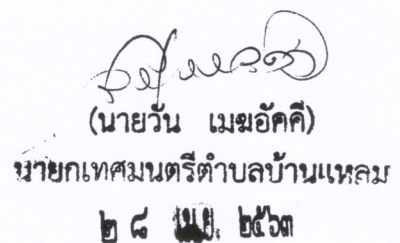 (นายวัน เมฆอัคคี)
นายกเทศมนตรีตำบลบ้านแหลม
๒๘ เม.ย. ๒๕๖๓